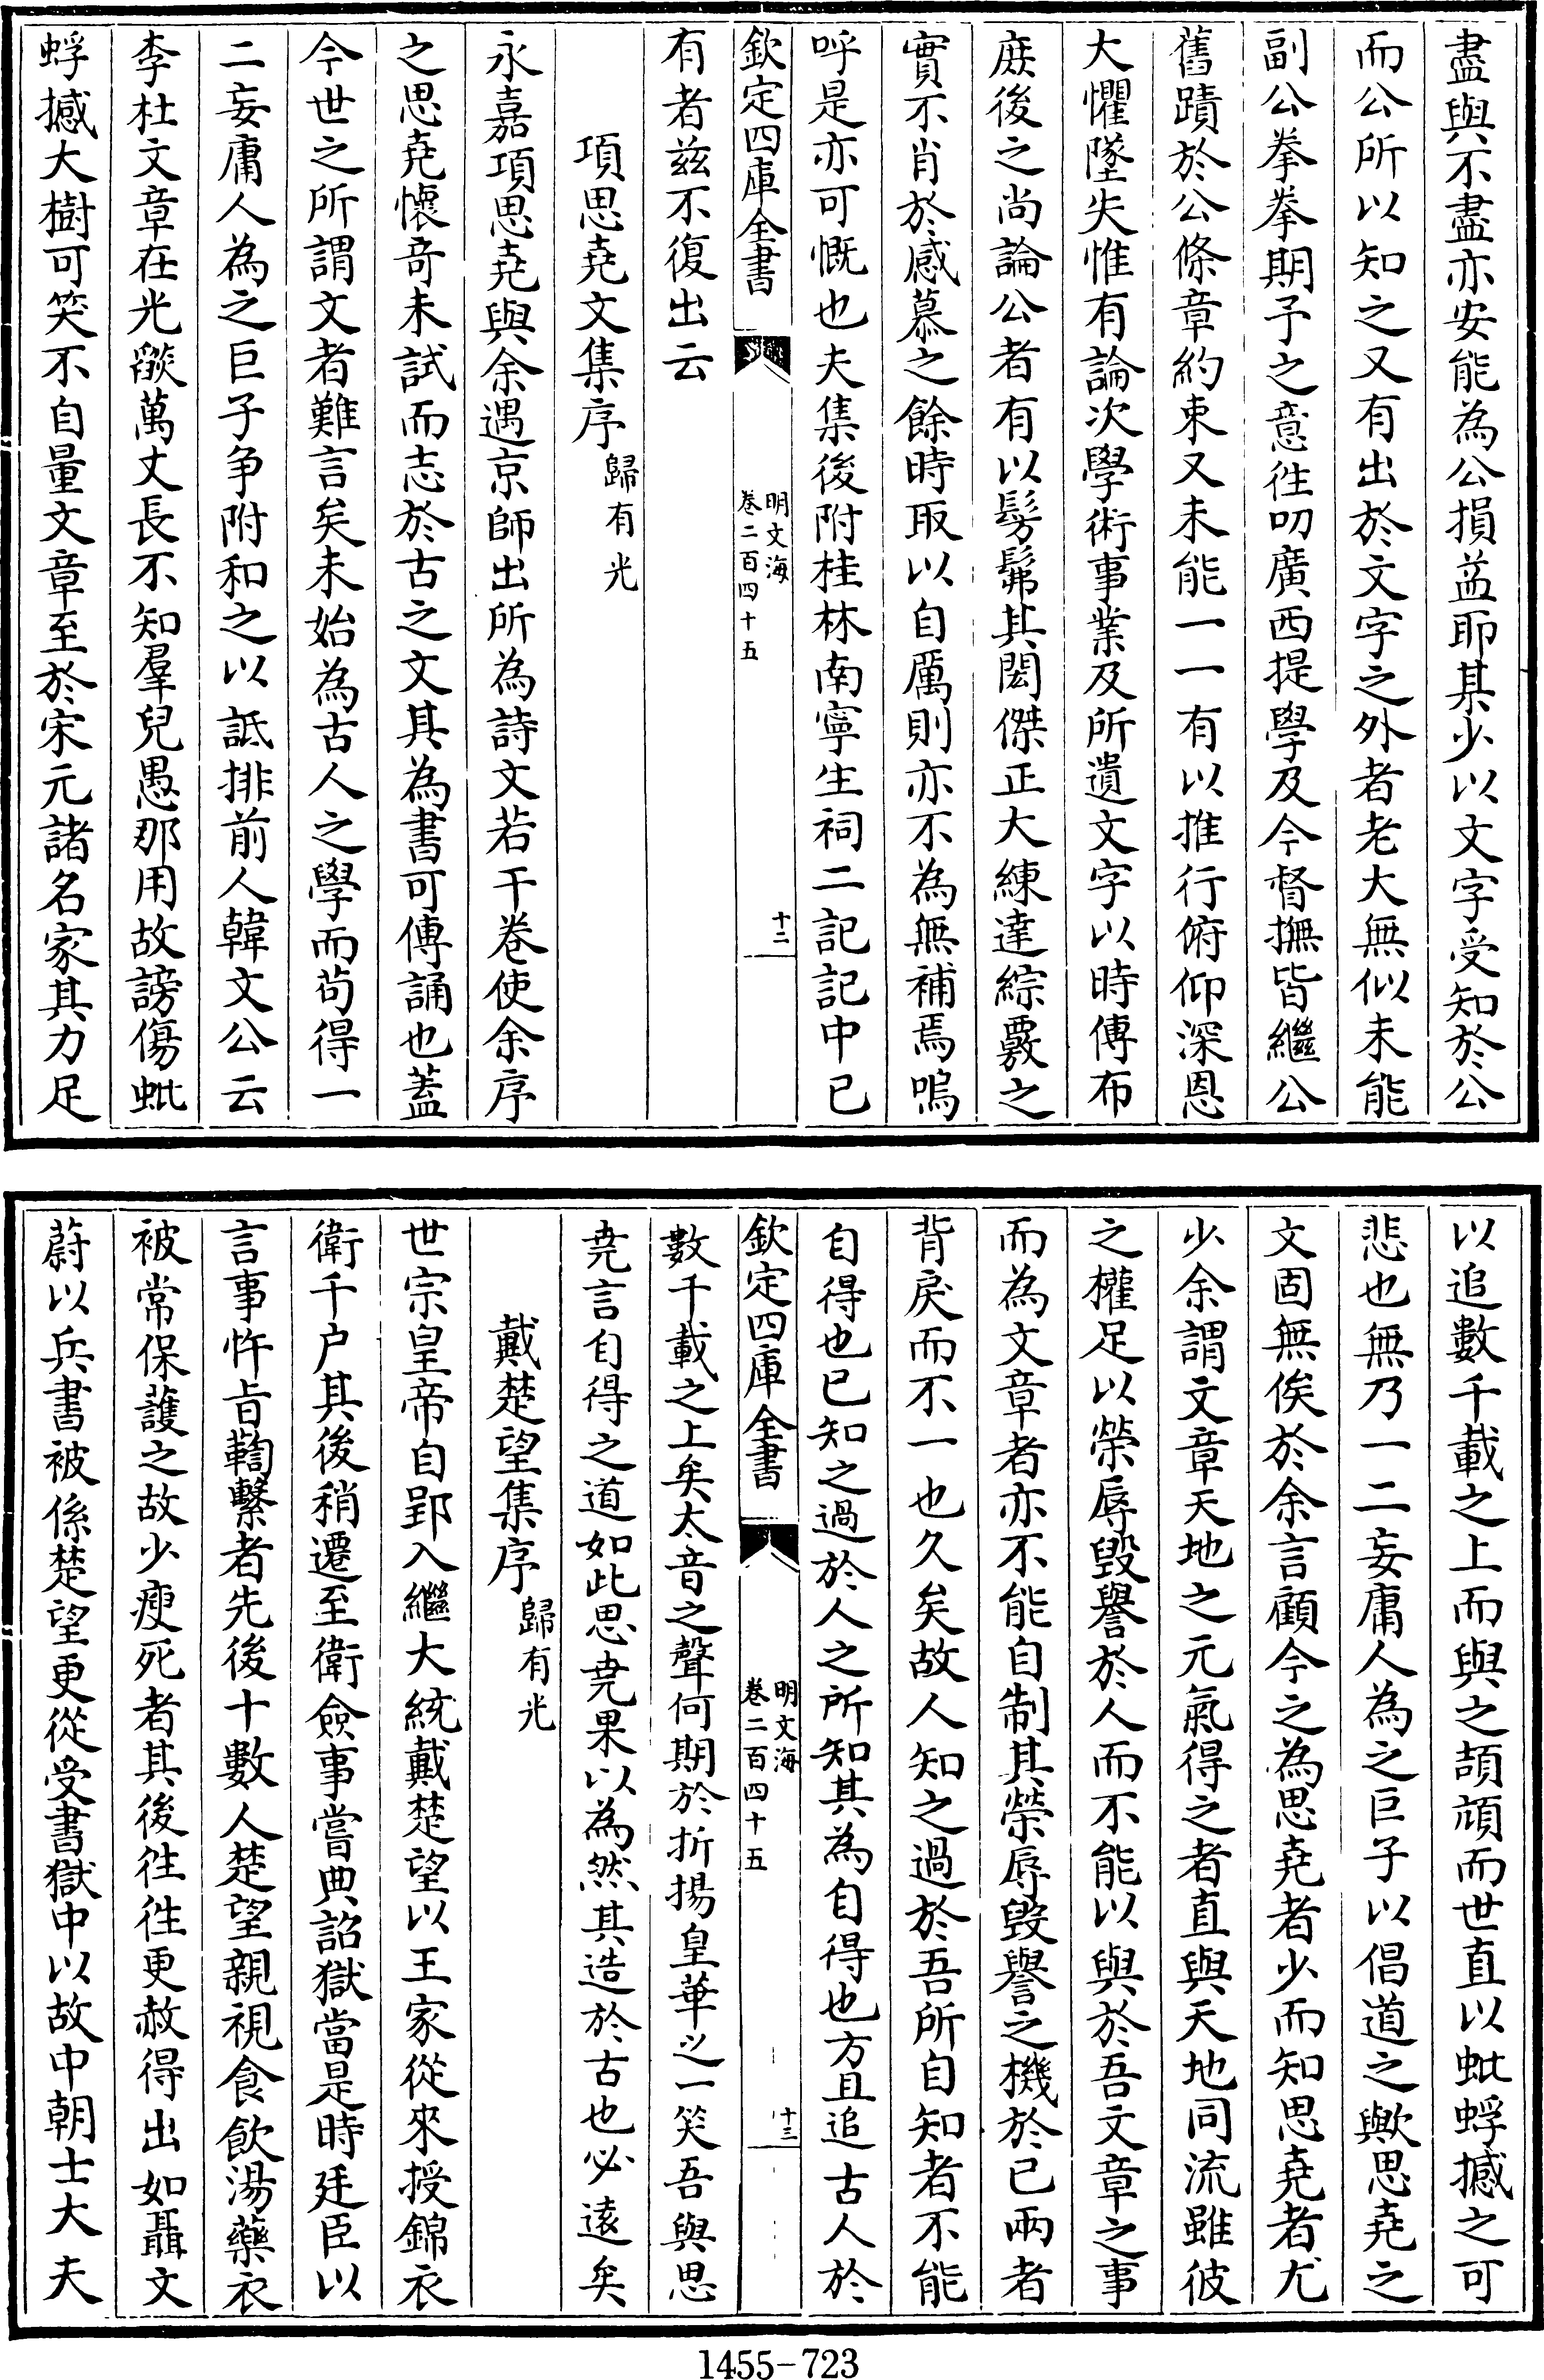 盡與不盡亦安能為公損益耶某少以文字受知於公
而公所以知之又有出於文字之外者老大無似未能
副公拳拳期予之意徃叨廣西提學及今督撫皆繼公
舊蹟於公條章約束又未能一一有以推行俯仰深恩
大懼墜失惟有論次學術事業及所遺文字以時傳布
庶後之尚論公者有以髣髴其閎傑正大練達綜覈之
實不肖於感慕之餘時取以自厲則亦不為無補焉嗚
呼是亦可慨也夫集後附桂林南寧生祠二記記中已
欽定四庫全書
明文海
卷二百四十五
十二
有者兹不復出云
項思堯文集序 歸有光
永嘉項思堯與余遇京師出所為詩文若干卷使余序
之思堯懷奇未試而志於古之文其為書可傳誦也蓋
今世之所謂文者難言矣未始為古人之學而苟得一
二妄庸人為之巨子争附和之以詆排前人韓文公云
李杜文章在光燄萬丈長不知羣兒愚那用故謗傷蚍
蜉撼大樹可笑不自量文章至於宋元諸名家其力足
以追數千載之上而與之頡頏而世直以蚍蜉撼之可
悲也無乃一二妄庸人為之巨子以倡道之歟思堯之
文固無俟於余言顧今之為思堯者少而知思堯者尤
少余謂文章天地之元氣得之者直與天地同流雖彼
之權足以榮辱毀譽於人而不能以與於吾文章之事
而為文章者亦不能自制其榮辱毀譽之機於已兩者
背戾而不一也久矣故人知之過於吾所自知者不能
自得也已知之過於人之所知其為自得也方且追古人於
欽定四庫全書
明文海
卷二百四十五
十三
數千載之上矣太音之聲何期於折揚皇華之一笑吾與思
堯言自得之道如此思堯果以為然其造於古也必遠矣
戴楚望集序 歸有光
世宗皇帝自郢入繼大統戴楚望以王家從來授錦衣
衛千户其後稍遷至衛僉事嘗典詔獄當是時廷臣以
言事忤㫖鞫繫者先後十數人楚望親視食飲湯藥衣
被常保護之故少瘐死者其後徃徃更赦得出如聶文
蔚以兵書被係楚望更從受書獄中以故中朝士大夫
1455-723